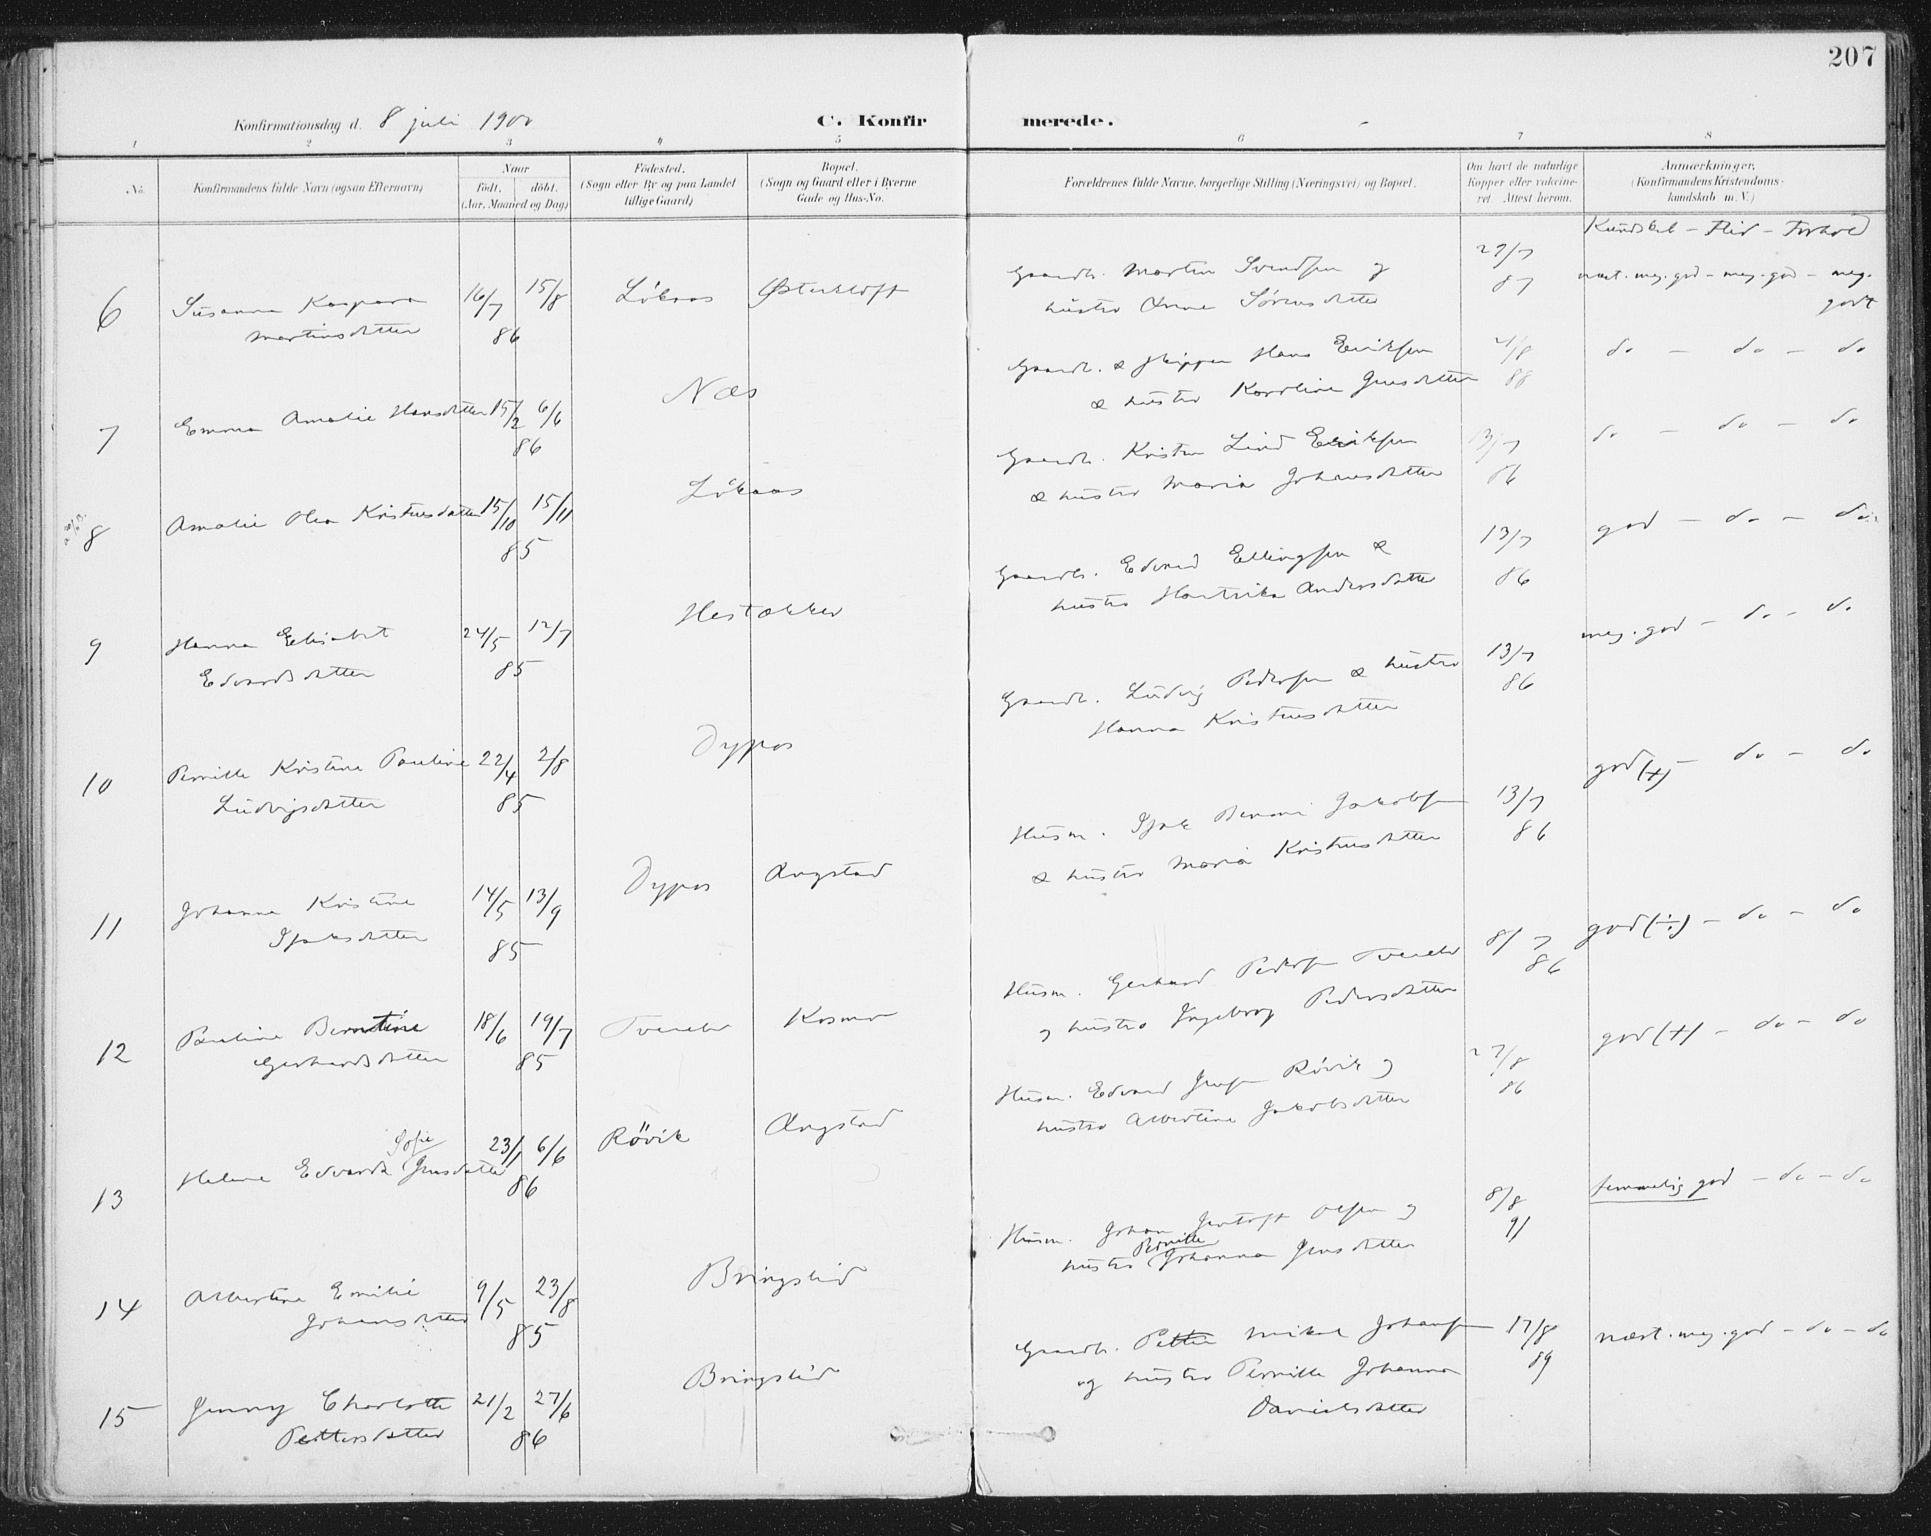 207
Konfirmationsdag d. 8 juli 1900
C. Konfirmerede.
1 2 3 4 5 6 7 8
No.
Konfirmandens fulde Navn (ogsaa Efternavn)
Naar
født. døbt.
(Aar, Maaned og Dag)
Fødested.
(Sogn eller By og paa Landet
tillige Gaard)
Bopæl.
(Sogn og Gaard eller i Byerne
Gade og Hus-No.
Forældrenes fulde Navne, borgerlige Stilling (Næringsvei) og Bopæl.
Om havt de naturlige
Kopper eller vakcine-
ret. Attest herom.
Anmærkninger.
(Konfirmandens Kristendoms-
kundskab m. V.)
Kundskab - Flid - Forhold
6 Susanna Kaspara 16/7 15/8 Løkaas Østerkløft Gaardb. Martin Svendsen og 27/7 næst. meg. god - meg. god - meg.
Martinsdatter 86 hustru Anne Sørensdatter 87 godt
7 Emma Amalie Hansdatter 15/2 6/6 Næs Gaardb. & skipper Hans Eriksen do - do - do
86 & hustru Karoline Jensdatter 88
8 Amalie Olea Kristensdatter 15/10 15/11 Løkaas Gaardb. Kristen Lind Eriksen 13/7 do - do - do
85 & hustru Maria Johansdatter 86
9 Hanna Elisabet 24/5 12/7 Hestækker Gaardb. Edvard Ellingsen & 13/7 god - do - do
Edvardsdatter 85 hustru Hartvika Andersdatter 86
10 Pernille Kristine Pauline 22/4 2/8 Dypos Gaardb. Ludvig Pedersen & hustru 13/7 meg. god - do - do
Ludvigsdatter 85 Hanna Kristensdatter 86
11 Johanna Kristine 14/5 13/9 Dypos Angstad Husm. Isak Benoni Jakobsen 13/7 god (+) - do - do
Isaksdatter 85 & hustru Maria Kristensdatter 86
12 Pauline Berntine 18/6 19/7 Tveraa Kosmo Husm. Gerhard Pedersen 8/7 god (÷) - do - do
Gerhardsdatter 85 og hustru Ingeborg Pedersdatter 86
13 Helene Edvarda Sofie Jensdatter 23/1 6/6 Røvik Angstad Husm. Edvard Jensen Røvik og 27/8 god (+) - do - do
86 hustru Albertine Jakobsdatter 86
14 Albertine Emilie 9/5 23/8 Bringslid Husm. Johan Jentoft Olsen og 8/8 temmelig god - do - do
Johansdatter 85 hustru Pernille Johanna Jensdatter 91
15 Jenny Charlotte 21/2 27/6 Bringslid Gaardb. Petter Mikal Johansen 17/8 næst. meg. god - do - do
Pettersdatter 86 og hustru Pernille Johanna 89
Danielsdatter